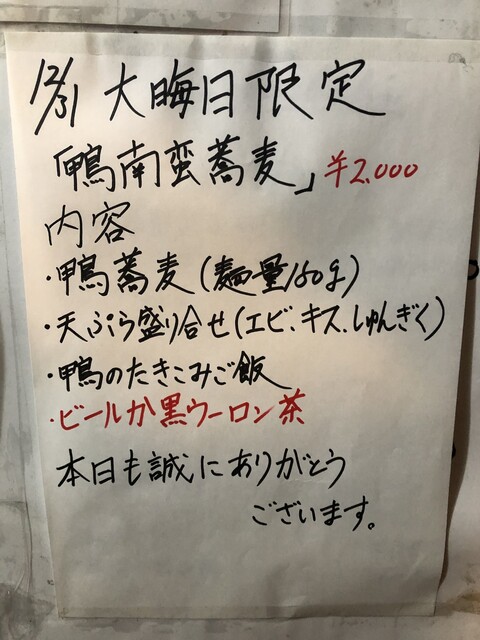 12/31 大晦日限定
「鴨南蛮蕎麦」¥2.000
内容
・鴨蕎麦(麺量150g)
・天ぷら盛り合せ(エビ、キス、しゅんぎく)
・鴨のたきこみご飯
・ビールか黒ウーロン茶
本日も誠にありがとう
ございます。